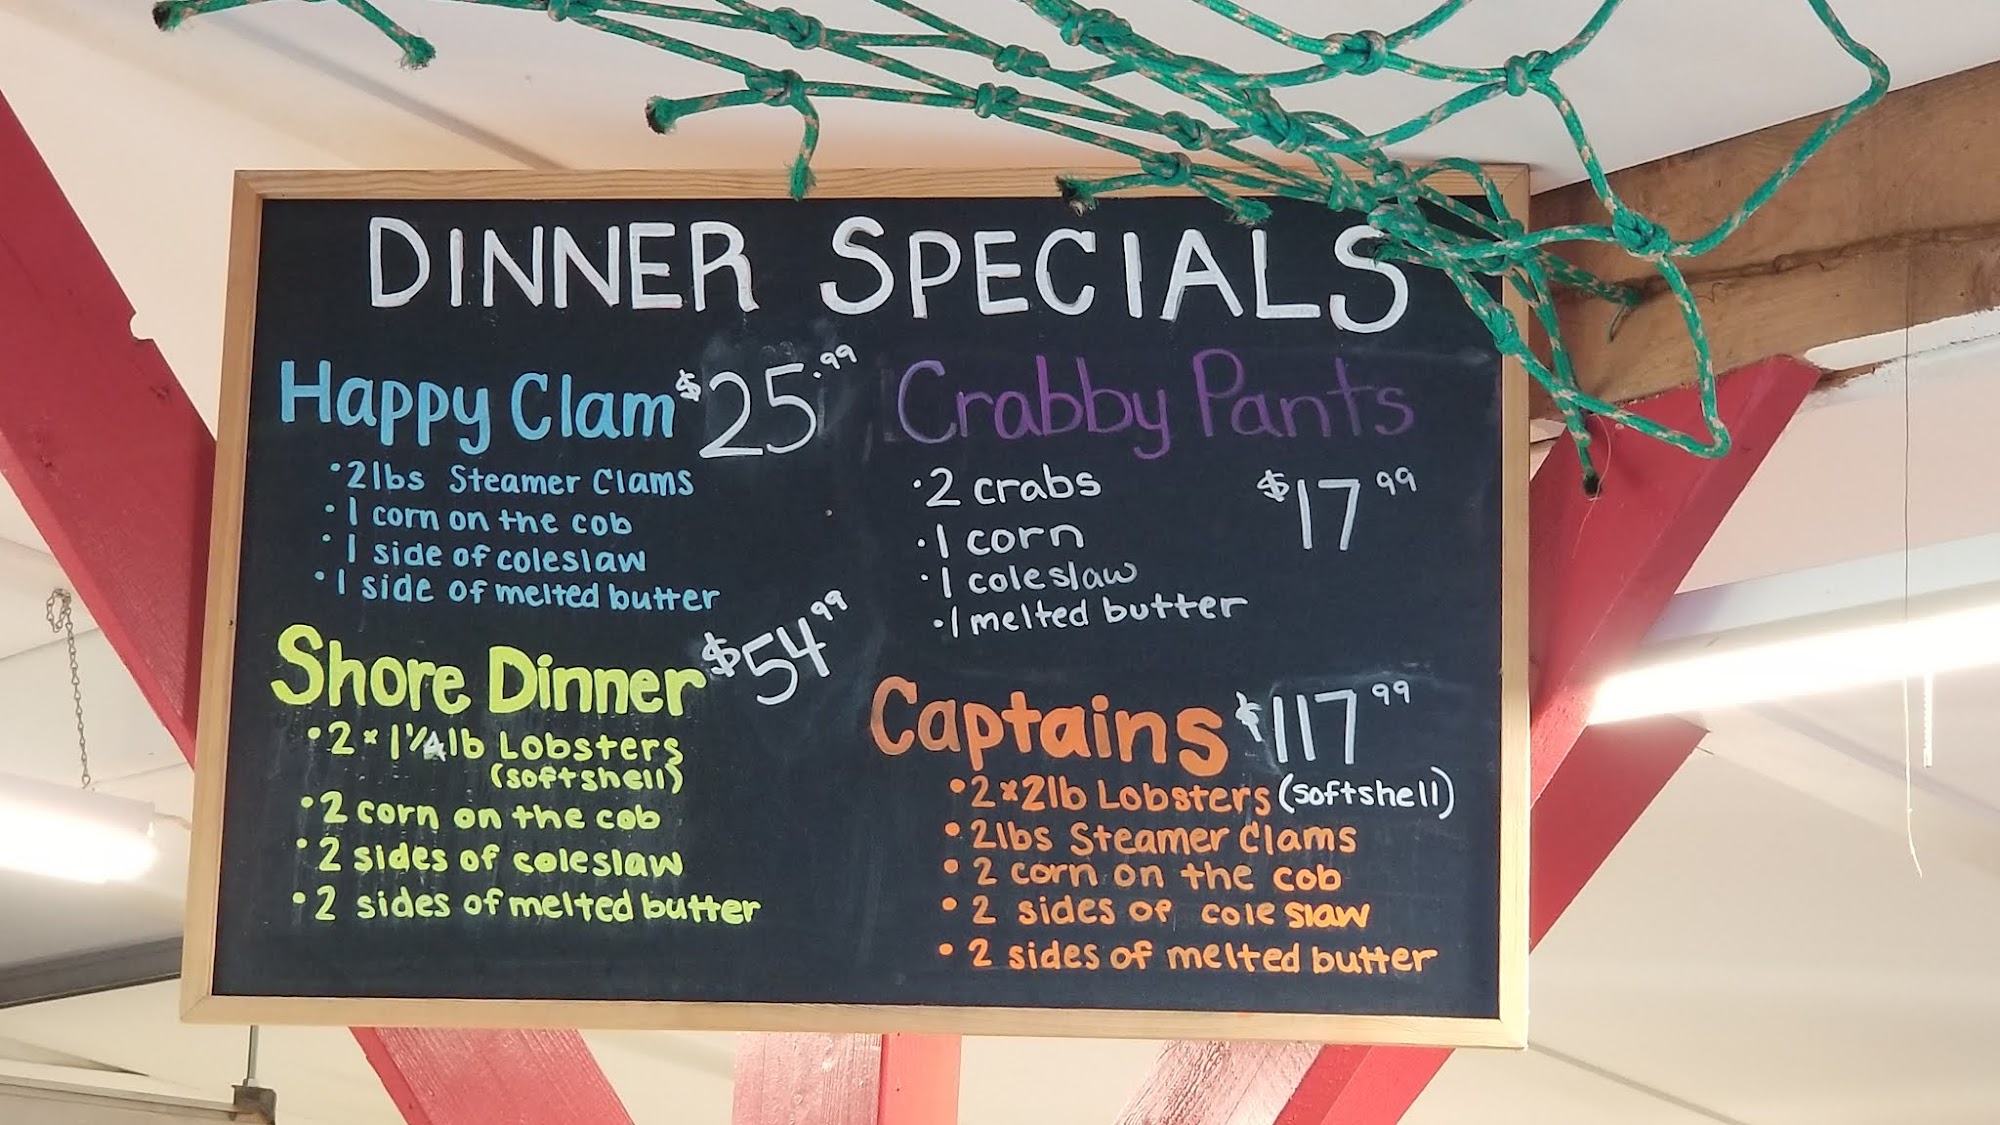 DINNER SPECIALS
Happy Clam $25.99
• 2lbs Steamer Clams
• 1 corn on the cob
• 1 side of coleslaw
• 1 side of melted butter
Shore Dinner $54.99
• 2 x 1 1/4 lb Lobsters
(softshell)
• 2 corn on the cob
• 2 sides of coleslaw
• 2 sides of melted butter
Crabby Pants
• 2 crabs $17.99
• 1 corn
• 1 coleslaw
• 1 melted butter
Captains $117.99
• 2x2lb Lobsters (softshell)
• 2lbs Steamer Clams
• 2 corn on the cob
• 2 sides of coleslaw
• 2 sides of melted butter